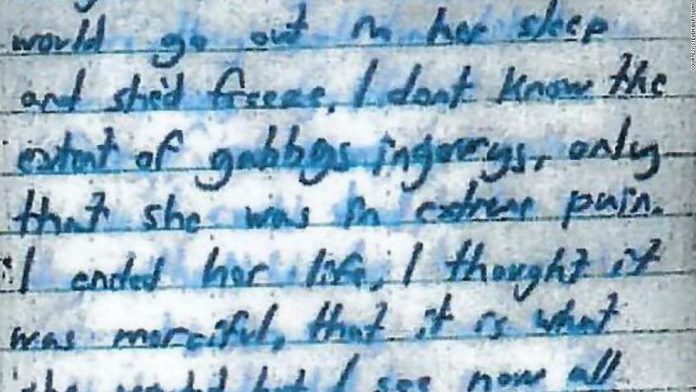 would go out in her sleep
and she'd freeze, I dont know the
extent of gabbys ingoerys, only
that she was in extreme pain.
I ended her life, I thought it
was merciful, that it is what
she wanted but I see now all